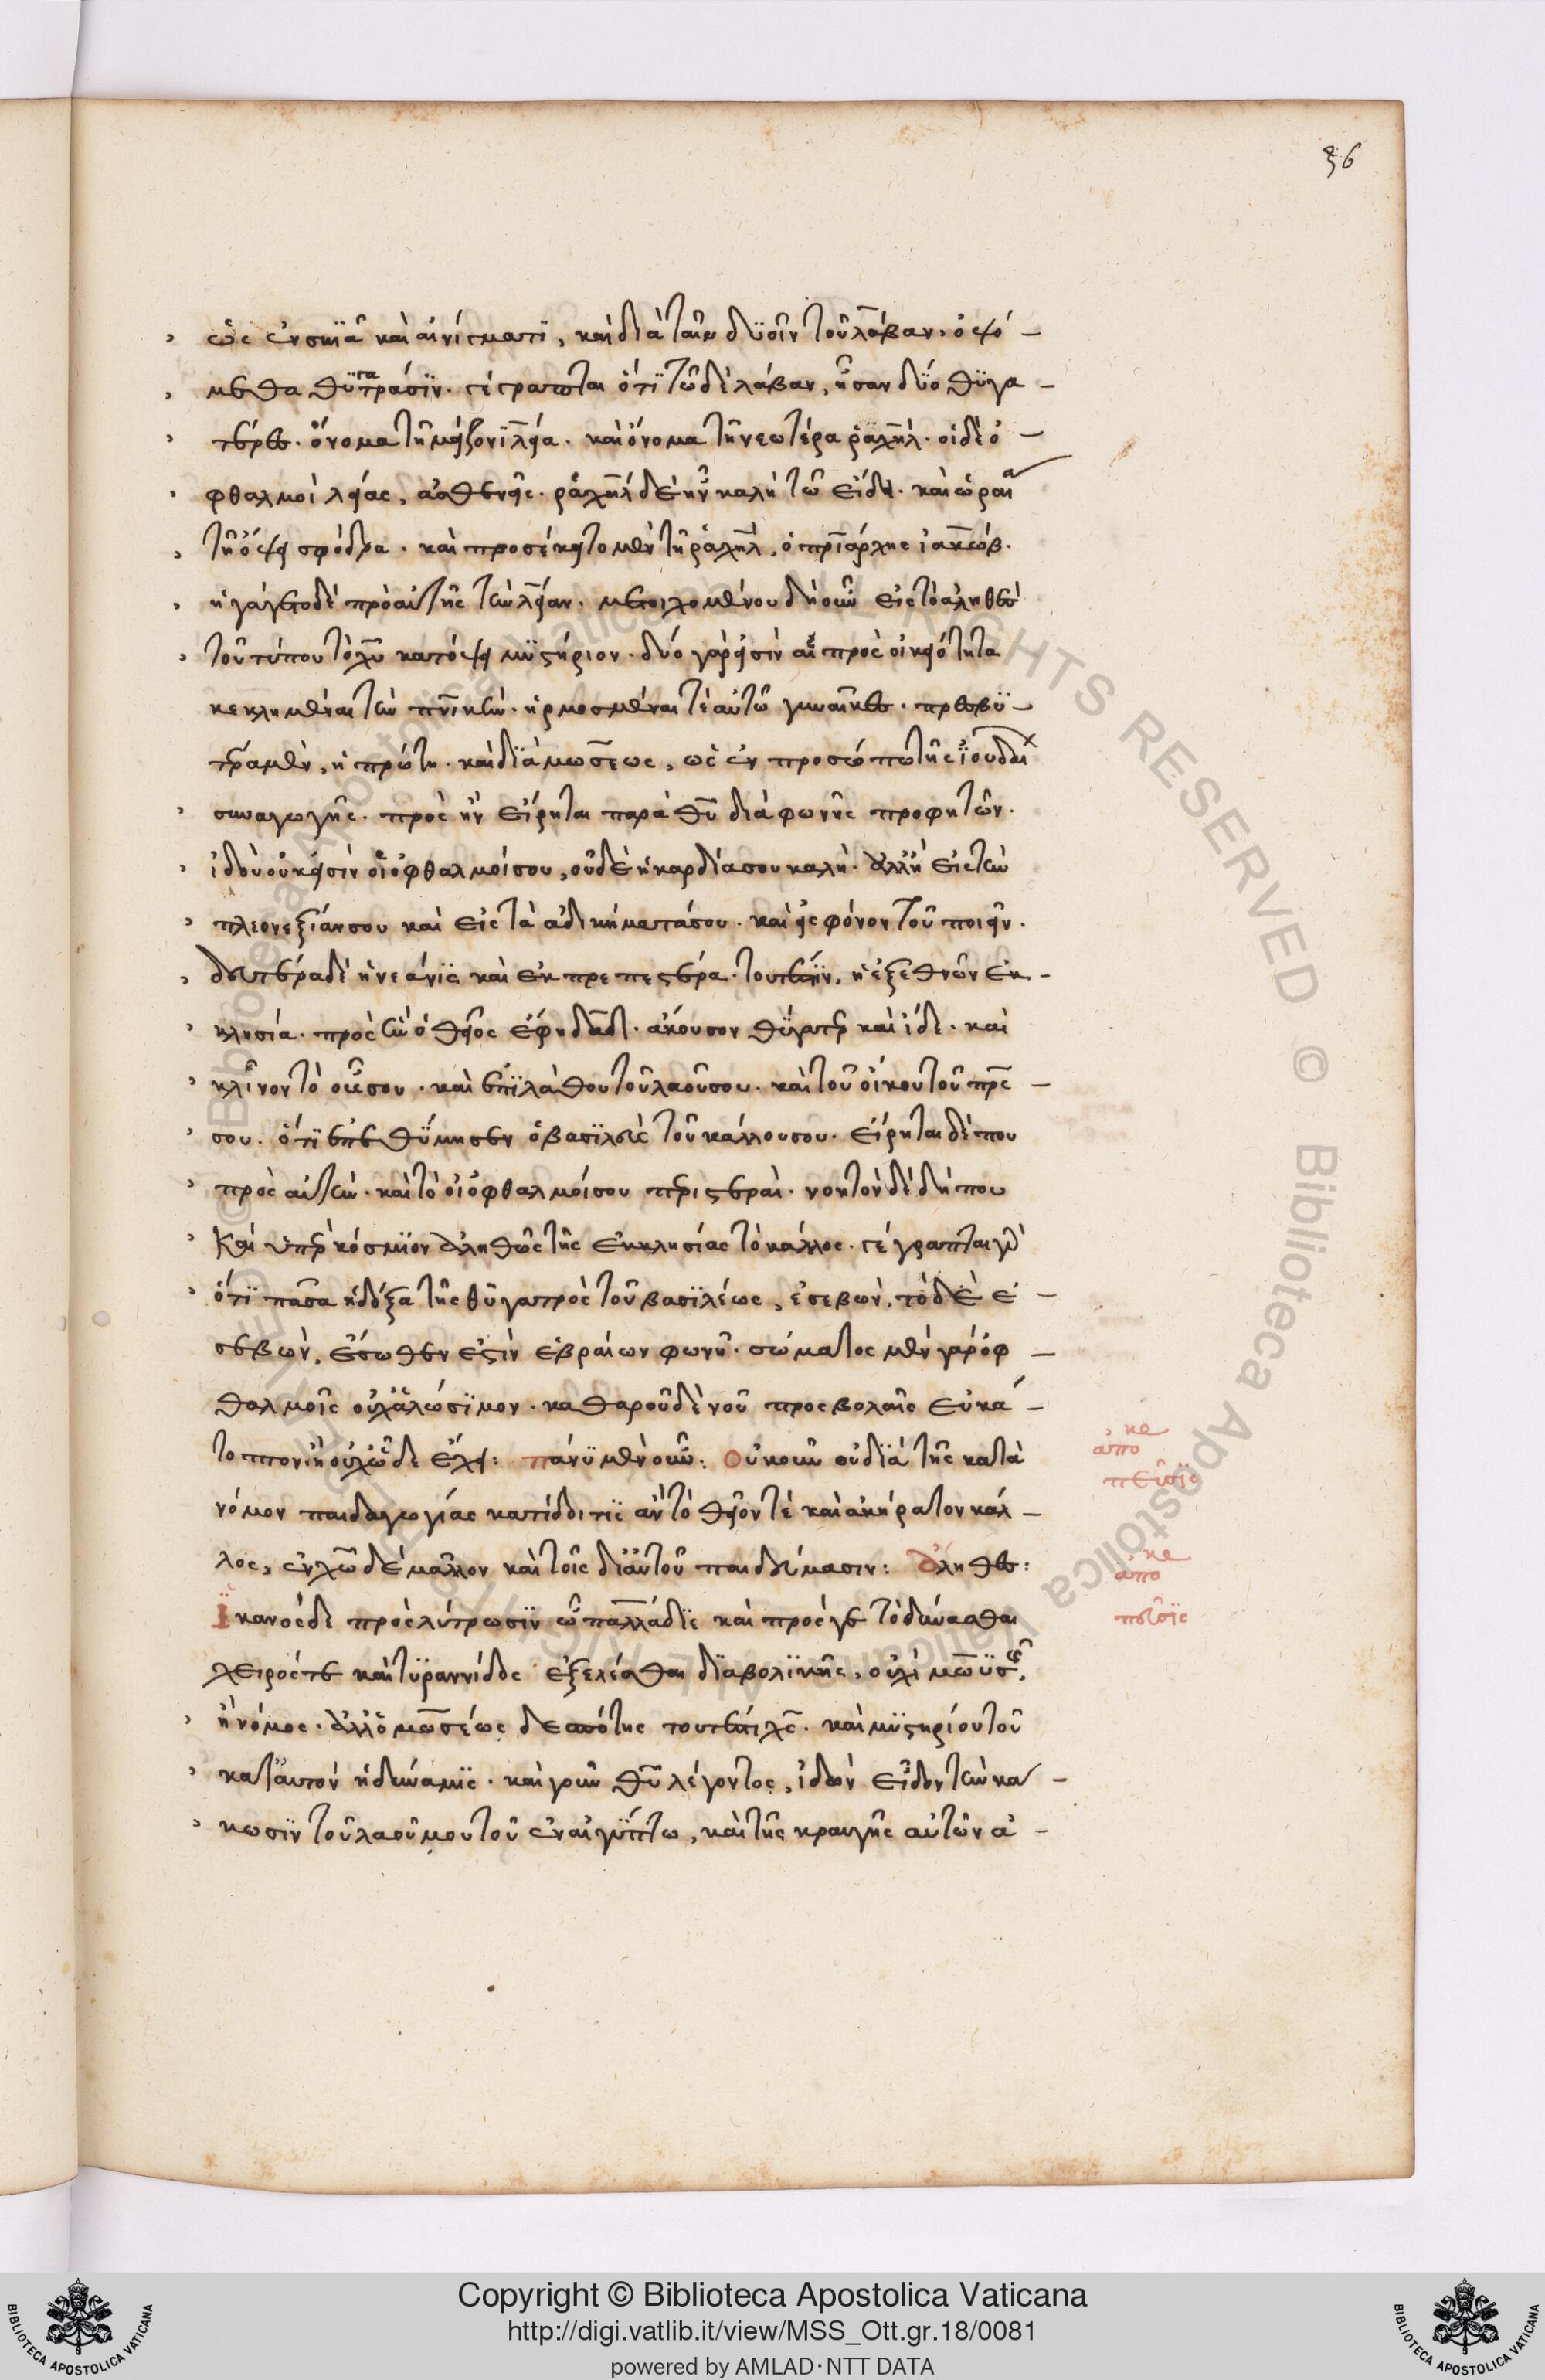 36
ὡς ἐν σκιᾶ καὶ αἰνίγματι, καὶ διὰ ταῖν δυοῖν τοῦ λάβαν, ὀψό –
μεθα θυγατράσιν. γέγραπται ὅτι τῶ δὲ λάβαν, ἦσαν δύο θυγα –
τέρες. ὄνομα τῆ μείζονι λεία. καὶ ὄνομα τῆ νεωτέρα ῥαχήλ. οἱ δὲ ὀ –
φθαλμοὶ λείας, ἀσθενεῖς. ῥαχὴλ δὲ ἦν καλὴ τῶ εἴδει. καὶ ὡραία
τῆ ὄψει σφόδρα. καὶ προσέκειτο μὲν τῆ ῥαχὴλ, ὁ πριάρχης ἰακώβ.
ἠγάγετο δὲ πρὸ αὐτῆς τὴν λείαν. μετοιχομένου δὴ οὖν εἰς τὸ ἀληθὲς
τοῦ τύπου τὸ χυ κατόψει μυστήριον. δύο γάρ εἰσιν αἱ πρὸς οἰκειότητα
κεκλημέναι τὴν πνικὴν. ἡρμοσμέναι τὲ αὐτῶ γυναῖκες. πρεσβυ –
τρα μὲν, ἡ πρώτη. καὶ διὰ μωσέως, ὡς ἐν προσώπω τῆς ἰουδαι
συναγωγῆς. πρὸς ἣν εἴρηται παρὰ θυ διὰ φωνῆς προφητῶν.
ἰδοὺ οὐκ εἰσὶν οἱ ὀφθαλμοί σου, οὐδὲ ἡ καρδία σου καλὴ. ἀλλ' ἢ εἰς τὴν
πλεονεξίαν σου καὶ εἰς τὰ ἀδικήματά σου. καὶ εἰς φόνον τοῦ ποιεῖν.
δευτέρα δὲ ἡ νεάνις καὶ ἐκπρεπεστέρα. τουτέστιν, ἡ ἐξ ἐθνῶν ἐκ –
κλησία. πρὸς ἣν ὁ θεῖος ἔφη δαδ. ἄκουσον θύγατερ καὶ ἴδε. καὶ
κλῖνον τὸ οὖς σου. καὶ ἐπιλάθου τοῦ λαοῦ σου. καὶ τοῦ οἴκου τοῦ πρς –
σου. ὅτι ἐπεθύμησεν ὁ βασιλεὺς τοῦ κάλλους σου. εἴρηται δέ που
πρὸς αὐτὴν. καὶ τὸ οἱ ὀφθαλμοί σου περιστεραὶ. νοητὸν δὲ δήπου
Καὶ ὑπερκόσμιον ἀληθῶς τῆς ἐκκλησίας τὸ κάλλος. γέγραπται γὰρ
ὅτι πᾶσα ἡ δόξα τῆς θυγατρὸς τοῦ βασιλέως, ἐσεβών. τὸ δὲ ἐ –
σεβών, ἔσωθεν ἐστὶν ἑβραίων φωνῆ. σώματος μὲν γὰρ ὀφ –
θαλμοῖς οὐχ ἁλώσιμον. καθαροῦ δὲ νοῦ προσβολαῖς εὐκά –
τοπτον. ἢ οὐχ ὧδε ἔχει: πάνυ μὲν οὖν: Οὐκοῦν οὐ διὰ τῆς κατὰ
νόμον παιδαγωγίας κατίδοι τις ἂν τὸ θεῖόν τε καὶ ἀκήρατον κάλ –
λος, ἐν χῶ δὲ μᾶλλον καὶ τοῖς δι' αὐτοῦ παιδεύμασιν: ἀληθὲς:
Ἱκανὸς δὲ πρὸς λύτρωσιν
χειρός τε καὶ τυραννίδος ἐξελέσθαι διαβολικῆς, οὐχὶ μωϋσῆς,
ἢ νόμος. ἀλλ' ὁ μωσέως δεσπότης τουτέστι χς. καὶ μυστηρίου τοῦ
κατ' αὐτὸν ἡ δύναμις. καὶ γοῦν θυ λέγοντος, ἰδὼν εἶδον τὴν κά –
κωσιν τοῦ λαοῦ μου τοῦ ἐν αἰγύπτω, καὶ τῆς κραυγῆς αὐτῶν ἀ –
κε
ἀπο
πεῦσις
κε
ἀπο
πεῦσις
© Biblioteca Apostolica Vaticana ALL RIGHTS RESERVED
Copyright © Biblioteca Apostolica Vaticana
http://digi.vatlib.it/view/MSS_Ott.gr.18/0081
powered by AMLAD·NTT DATA
BIBLIOTECA APOSTOLICA VATICANA
BIBLIOTECA APOSTOLICA VATICANA